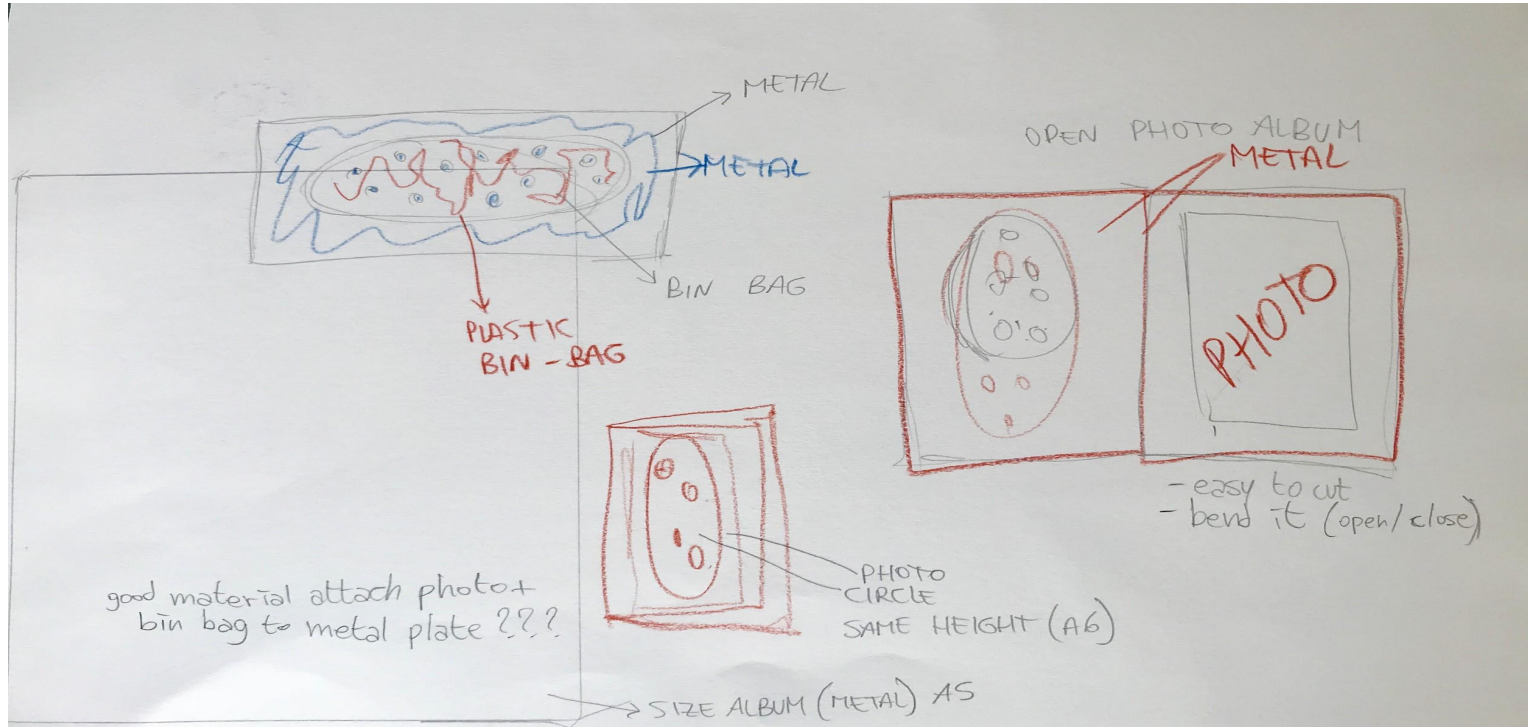 METAL
METAL
BIN BAG
PLASTIC
BIN-BAG
OPEN PHOTO ALBUM
METAL
PHOTO
- easy to cut
- bend it (open/close)
PHOTO
CIRCLE
SAME HEIGHT (A6)
good material attach photo+
bin bag to metal plate ???
SIZE ALBUM (METAL) A5